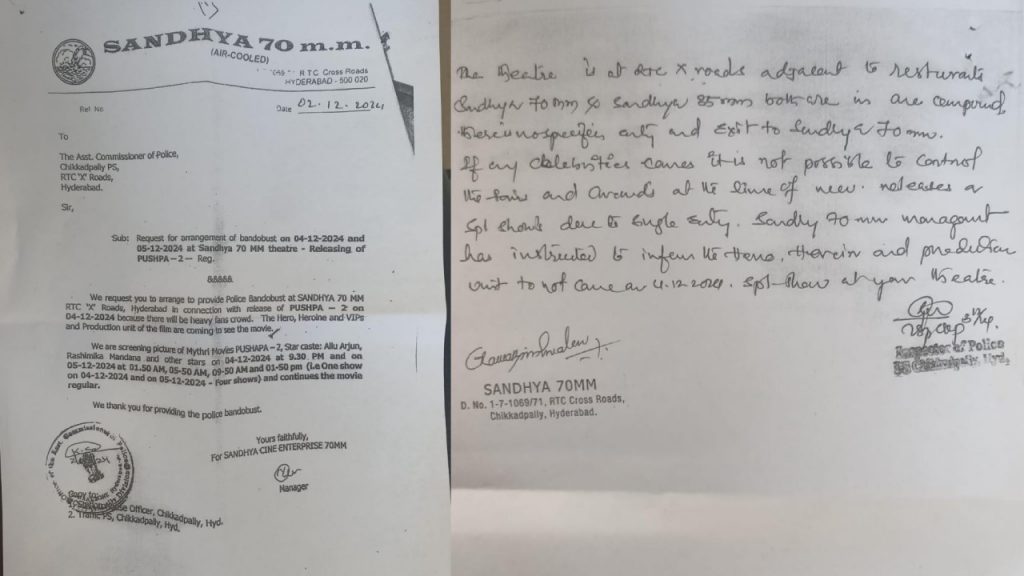 SANDHYA 70 m.m.
(AIR-COOLED)
RTC Cross Roads
HYDERABAD - 500 020
Ref No.
Date 02.12.2024
To
The Asst. Commissioner of Police,
Chikkadpally PS,
RTC "X" Roads,
Hyderabad.
Sir,
Sub: Request for arrangement of bandobust on 04-12-2024 and
05-12-2024 at Sandhya 70 MM theatre - Releasing of
PUSHPA-2- Reg.
&&&&&
We request you to arrange to provide Police Bandobust at SANDHYA 70 MM
RTC "X" Roads, Hyderabad in connection with release of PUSHPA - 2 on
04-12-2024 because there will be heavy fans crowd. The Hero, Heroine and VIPs
and Production unit of the film are coming to see the movie.
We are screening picture of Mythri Movies PUSHAPA-2, Star caste: Allu Arjun,
Rashimika Mandana and other stars on 04-12-2024 at 9.30 PM and on
05-12-2024 at 01.50 AM, 05-50 AM, 09-50 AM and 01-50 pm (i.e One show
on 04-12-2024 and on 05-12-2024 - Four shows) and continues the movie
regular.
We thank you for providing the police bandobust.
Yours faithfully,
For SANDHYA CINE ENTERPRISE 70MM
Manager
Office of the Asst. Commissioner of Police
Copy to:
1. Officer, Chikkadpally, Hyd.
2. Traffic PS, Chikkadpally, Hyd.
The Theatre is at RTC X roads adjacent to
Sandhya 70mm & Sandhya 35mm both are in compound,
entry and Exit to Sandhya 70mm.
If any celebrities comes it is not possible to control
the fans and crowds at the time of new releases
spl shows due to single entry. Sandhya 70 mm
has instructed to inform the Hero, and production
unit to not came on 4.12.2024. spl-show at your theatre.
SANDHYA 70MM
D. No. 1-7-1069/71, RTC Cross Roads,
Chikkadpally, Hyderabad.
Inspector of Police
PS Chikkadpally, Hyd.